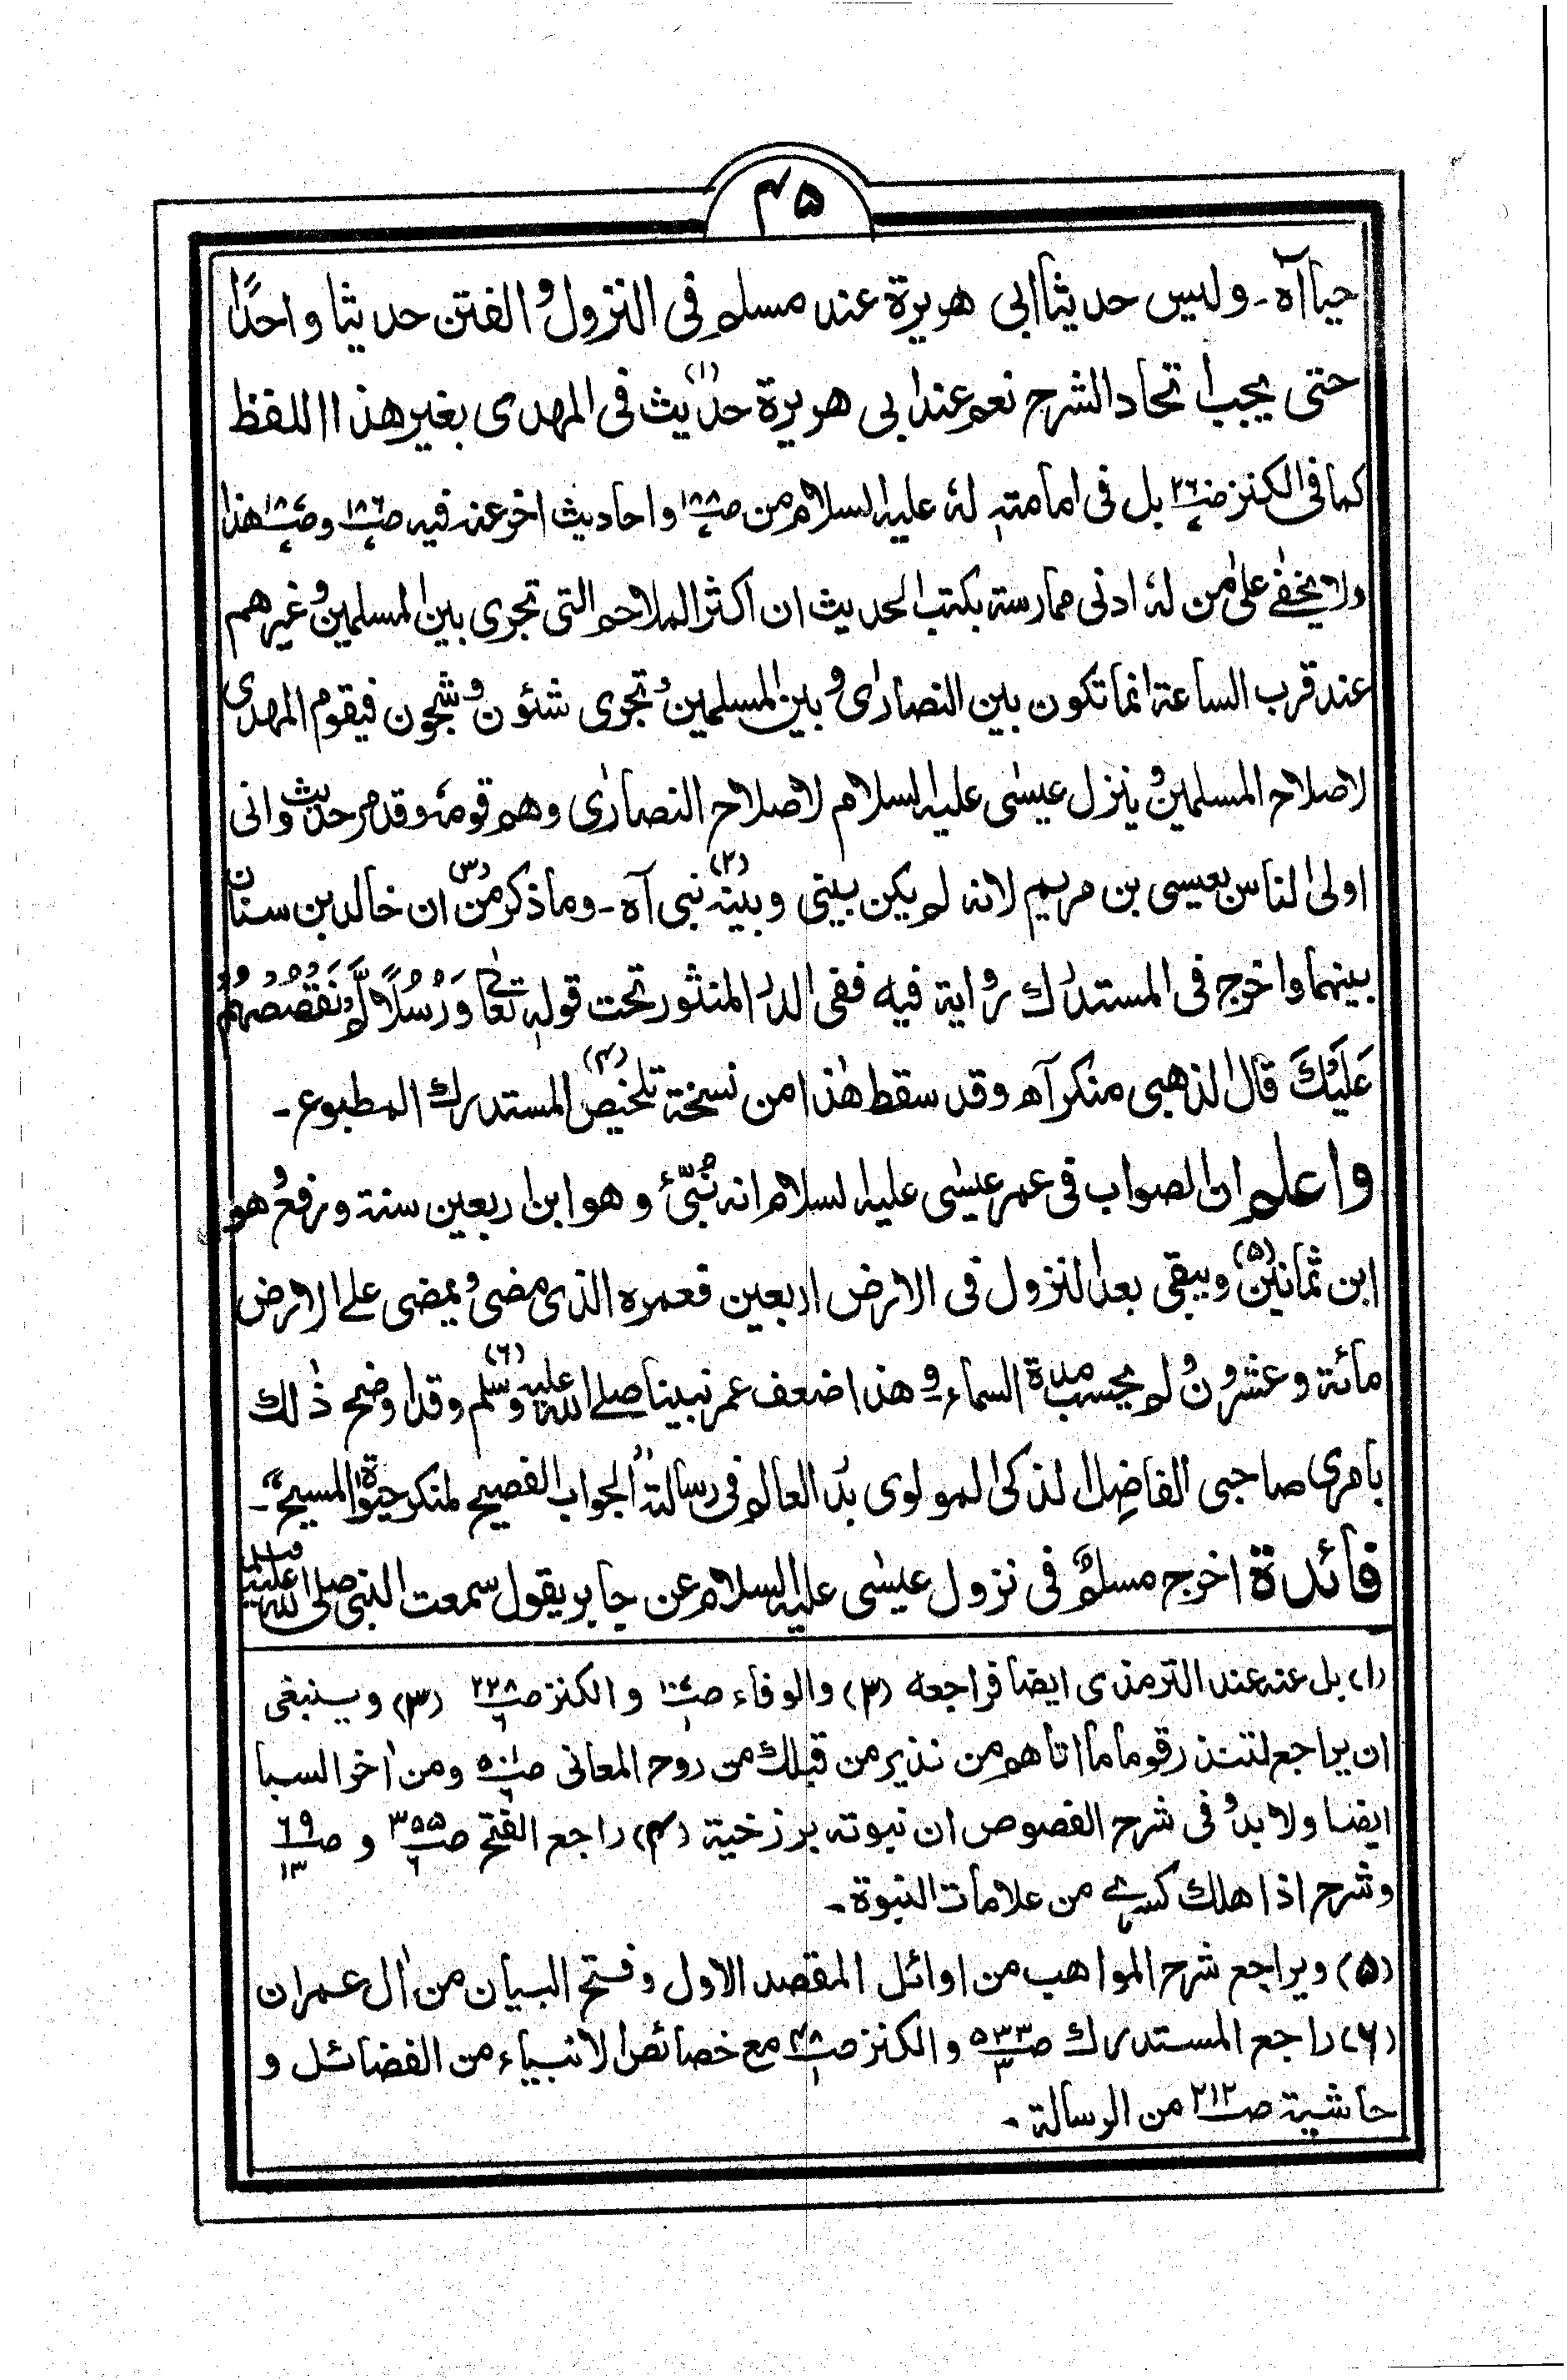 ۴۵
حيا آه ـ وليس حديثا ابى هريرة عند مسلم فى النزول و الفتن حديثا واحدًا
حتى يجب اتحاد الشرح نعم عند ابى هريرة حديث (۱) فى المهدى بغير هذا اللفظ
كما فى الكنز بل فى امامته لهٗ عليه السلام من ص۱۸۸ و احاديث اخر عنه فيه ص۱۸۶ و هذا
ولا يخفٰے علىٰ من لهٗ ادنى ممارسته بكتب الحديث ان اكثر الملاحم التى تجرى بين المسلمين و غيرهم
عند قرب الساعة انما تكون بين النصارٰى و بين المسلمين و تجرى شئون و شجون فيقوم المهدى
لاصلاح المسلمين و ينزل عيسٰى عليه السلام لاصلاح النصارٰى وهم قومهٗ وقد مر حديث وانى
اولى الناس بعيسى بن مريم لانه لم يكن بينى وبينه (۲) نبى آه ـ وما ذكر من (۳) ان خالد بن سنان
بينهما واخرج فى المستدرك رواية فيه ففى الدر المنثور تحت قولهٖ تعالٰى وَرُسُلًا لَّمْ نَقْصُصْهُمْ
عَلَيْكَ قال الذهبى منكر آه وقد سقط هٰذا من نسخة تلخيص (۴) المستدرك المطبوع ـ
واعلم ان الصواب فى عمر عيسٰى عليه السلام انه نُبِّئَ و هو ابن اربعين سنة و رفع و هو
ابن ثمانين (۵) ويبقى بعد النزول فى الارض اربعين فعمره الذى مضى و يمضى على الارض
مائة وعشرون و لم يحسب مدة السماء و هذا ضعف عمر نبينا صلى الله عليه وسلم (۶) وقد اوضح ذٰلك
بامرى صاحبى الفاضل الذكى المولوى بدر العالم فى رسالته "الجواب الفصيح لمنكر حيوة المسيح" ـ
فائدة اخرج مسلم فى نزول عيسٰى عليه السلام عن جابر يقول سمعت النبى صلى الله عليه وسلم
(۱) بل عنه عند الترمذى ايضا فراجعه (۲) والوفاء و الكنز ص۲۲۸/۶ (۳) وينبغى
ان يراجع لتنذر قوما ما اتاهم من نذير من قبلك من روح المعانى و من اٰخر السبا
ايضا ولا بد و فى شرح الفصوص ان نبوته برزخية (۴) راجع الفتح ص۳۵۵/۶ و ص۶۹/۱۳
وشرح اذا هلك كسرٰے من علامات النبوة ـ
(۵) ويراجع شرح المواهب من اوائل المقصد الاول و فتح البيان من اٰل عمران
(۶) راجع المستدرك ص۵۳۳/۳ و الكنز مع خصائص الانبياء من الفضائل و
حاشية ص۲۱۲ من الرسالة ـ